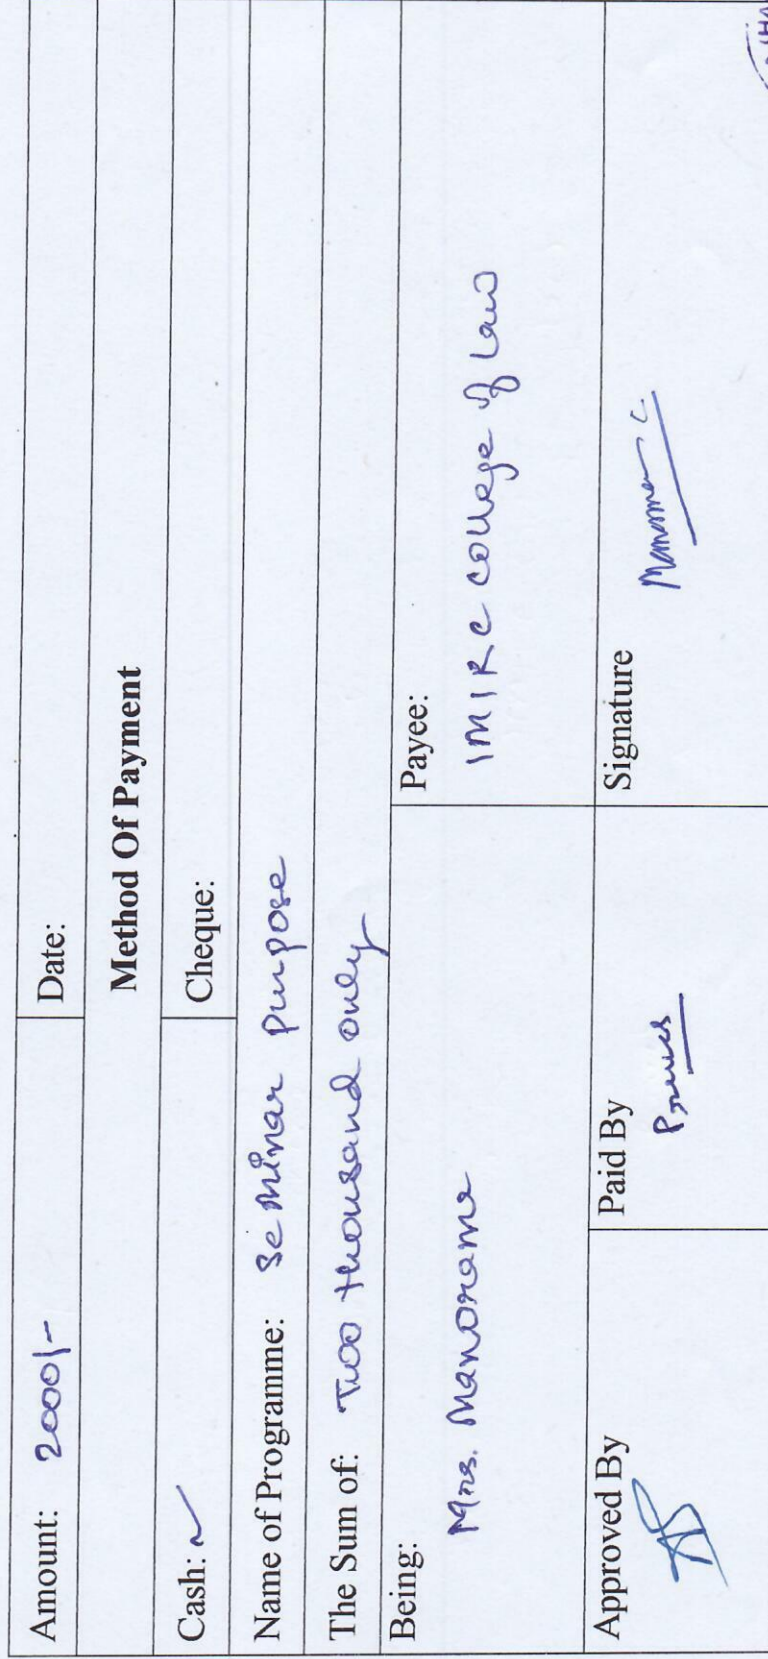 Amount: 2000/- Date:
Method Of Payment
Cash: Cheque:
Name of Programme: Seminar purpose
The Sum of: Two thousand only
Being: Payee:
Mrs. Manorama IMIRC College of Law
Approved By Paid By Signature